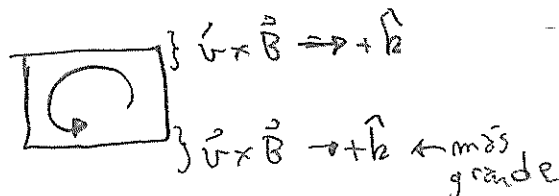 } v⃗ × B⃗ ⇒ + k̂
} v⃗ × B⃗ → + k̂ ← más
grande